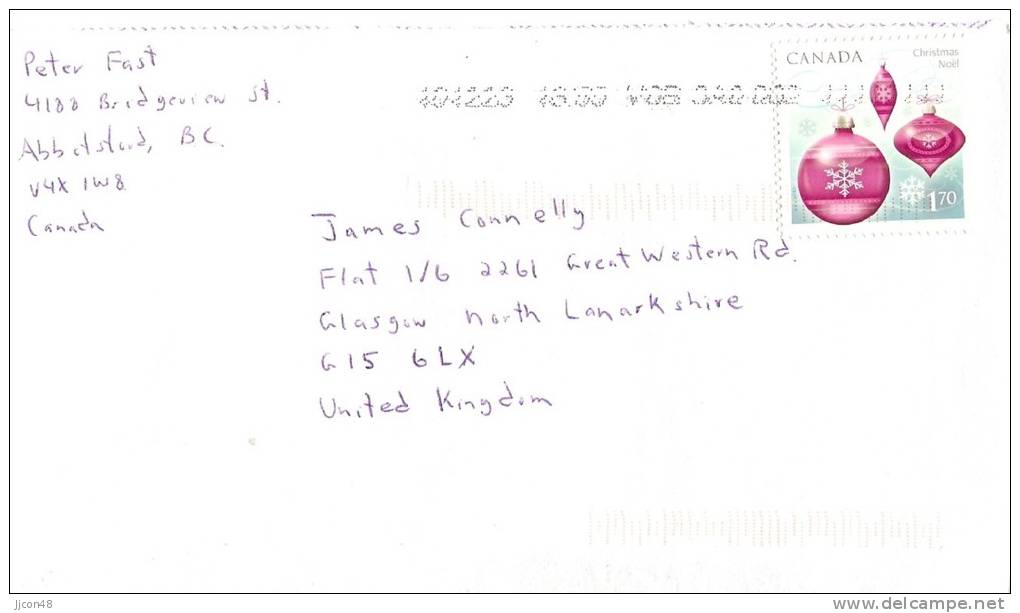 Peter Fast
4188 Bridgeview St.
Abbotsford, BC.
V4X 1W8
Canada
CANADA
Christmas
Noël
170
James Connelly
Flat 1/6 2261 Great Western Rd.
Glasgow North Lanarkshire
G15 6LX
United Kingdom
jjcon48
www.delcampe.net